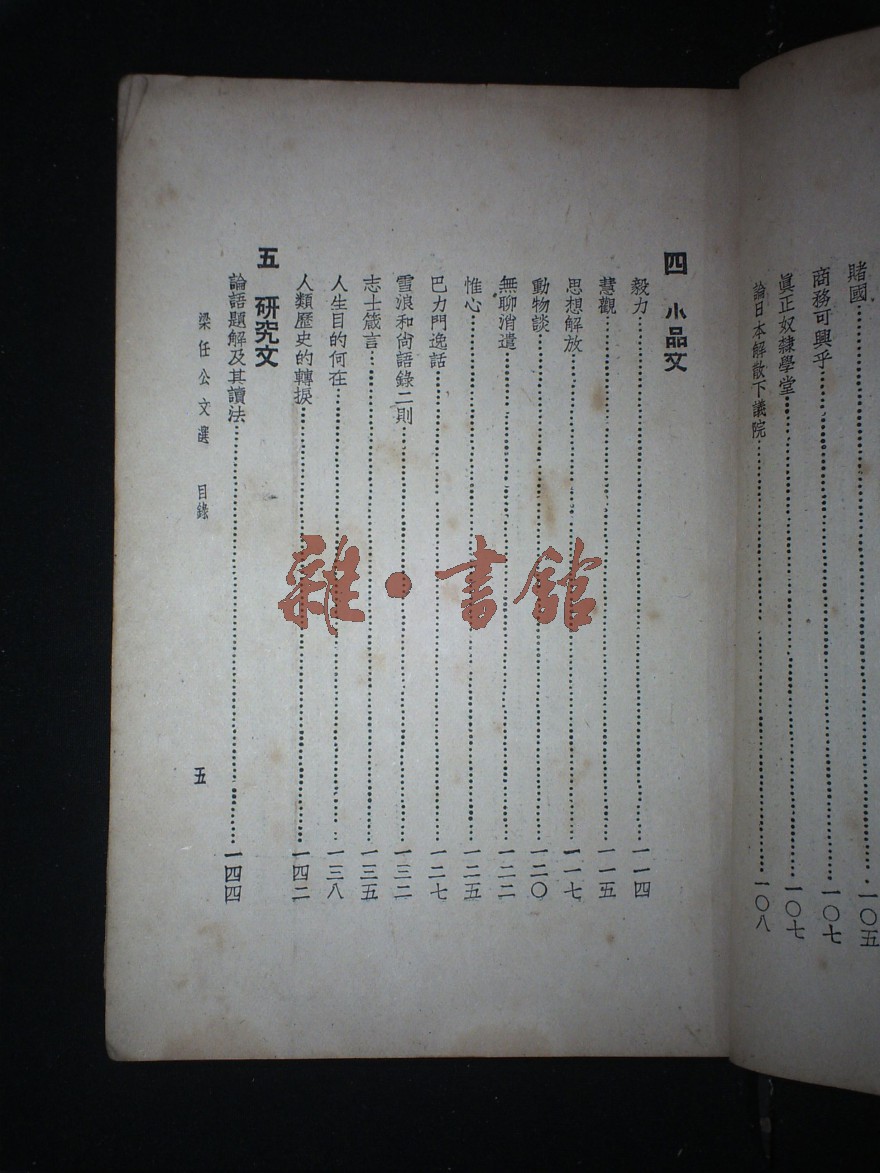 賭國……一〇五
商務可興乎……一〇七
眞正奴隸學堂……一〇七
論日本解散下議院……一〇八
四 小品文
毅力……一一四
慧觀……一一五
思想解放……一一七
動物談……一二〇
無聊消遣……一二二
惟心……一二五
巴力門逸話……一二七
雪浪和尙語錄二則……一三二
志士箴言……一三五
人生目的何在……一三八
人類歷史的轉捩……一四二
五 研究文
論語題解及其讀法……一四四
梁任公文選 目錄 五
雜·書館